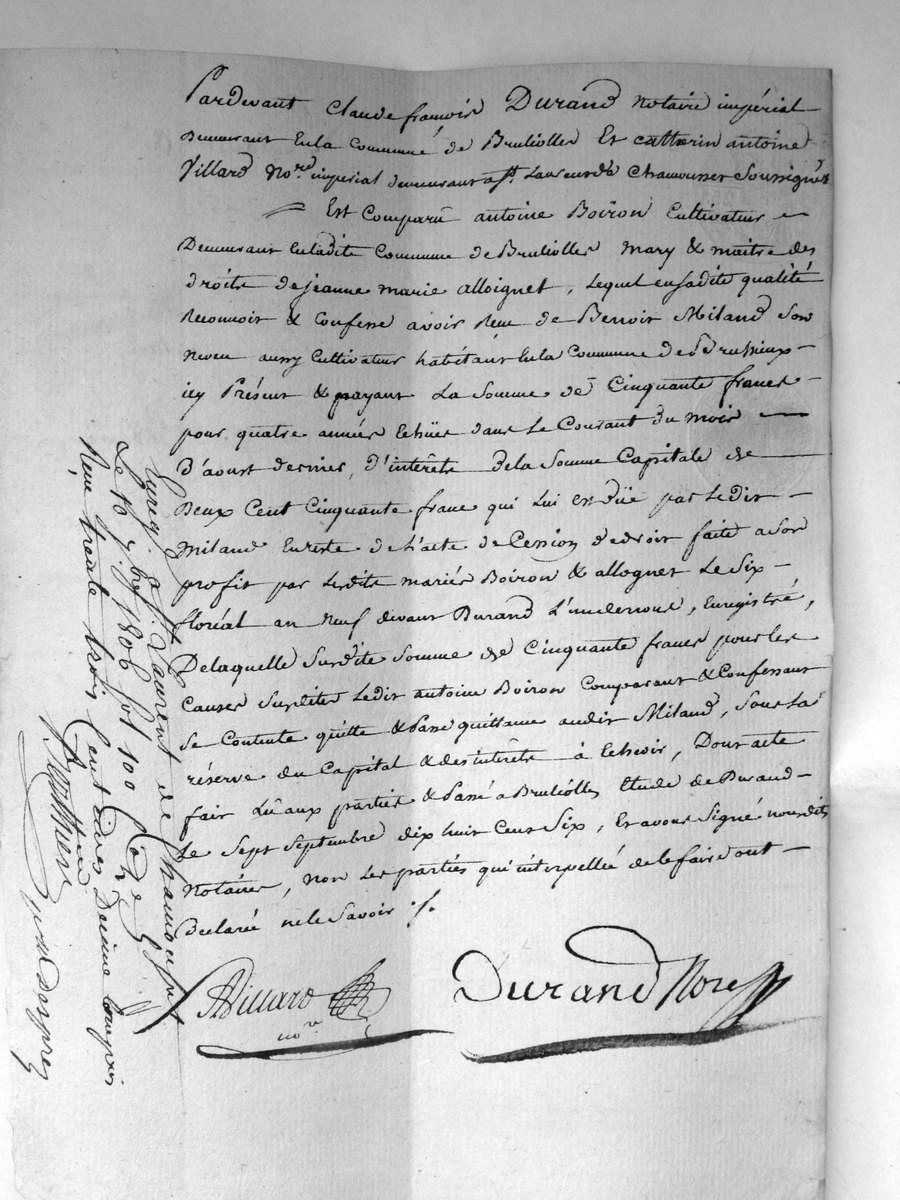 Pardevant Claude françois Durand notaire impérial
Demeurant En la Commune de Brulliolles Et catherin antoine
Villard No.re impérial demeurant a St. Laurent de Chamousset Soussignés
Est Comparu antoine Boiron Cultivateur
Demeurant En ladite Commune de Brulliolles mary & maitre des
droits de jeanne marie alloignet, lequel en sadite qualité
Reconnoit & Confesse avoir Reçu de Benoit Miland Son
neveu aussy Cultivateur habitant En la Commune de Brussieux
icy Présent & payant La Somme de Cinquante francs
pour quatre années Echües dans Le Courant du mois
D'aoust dernier, D'intérêts De la Somme Capitale de
Deux Cent Cinquante francs qui Lui est düe par Ledit
Miland En reste de L'acte de Cession de droit faite a Son
profit par Lesdits mariés Boiron & allognet Le Six
floréal an neuf devant Durand L'un de nous, Enregistré,
De laquelle Susdite Somme de Cinquante francs pour les
Causes Susdites Ledit antoine Boiron Comparant & Confessant
Se Contente quitte & Passe quittance audit Miland, Sous La
réserve du Capital & des intérêts à Echeoir, Dont acte
fait Lû aux parties & Passé a Brulliolles Etude de Durand
Le Sept Septembre dix huit Cent Six, Et avons Signé nousdits
Notaires, non Les parties qui interpellée de le faire ont
Déclaré ne le Savoir
AVillard
no.re
Durand Nore
Enreg. a St. Laurent de Chamousset
Le 10 7.bre 1806 fol 100
Reçu trente trois Cent.imes Décime Compris